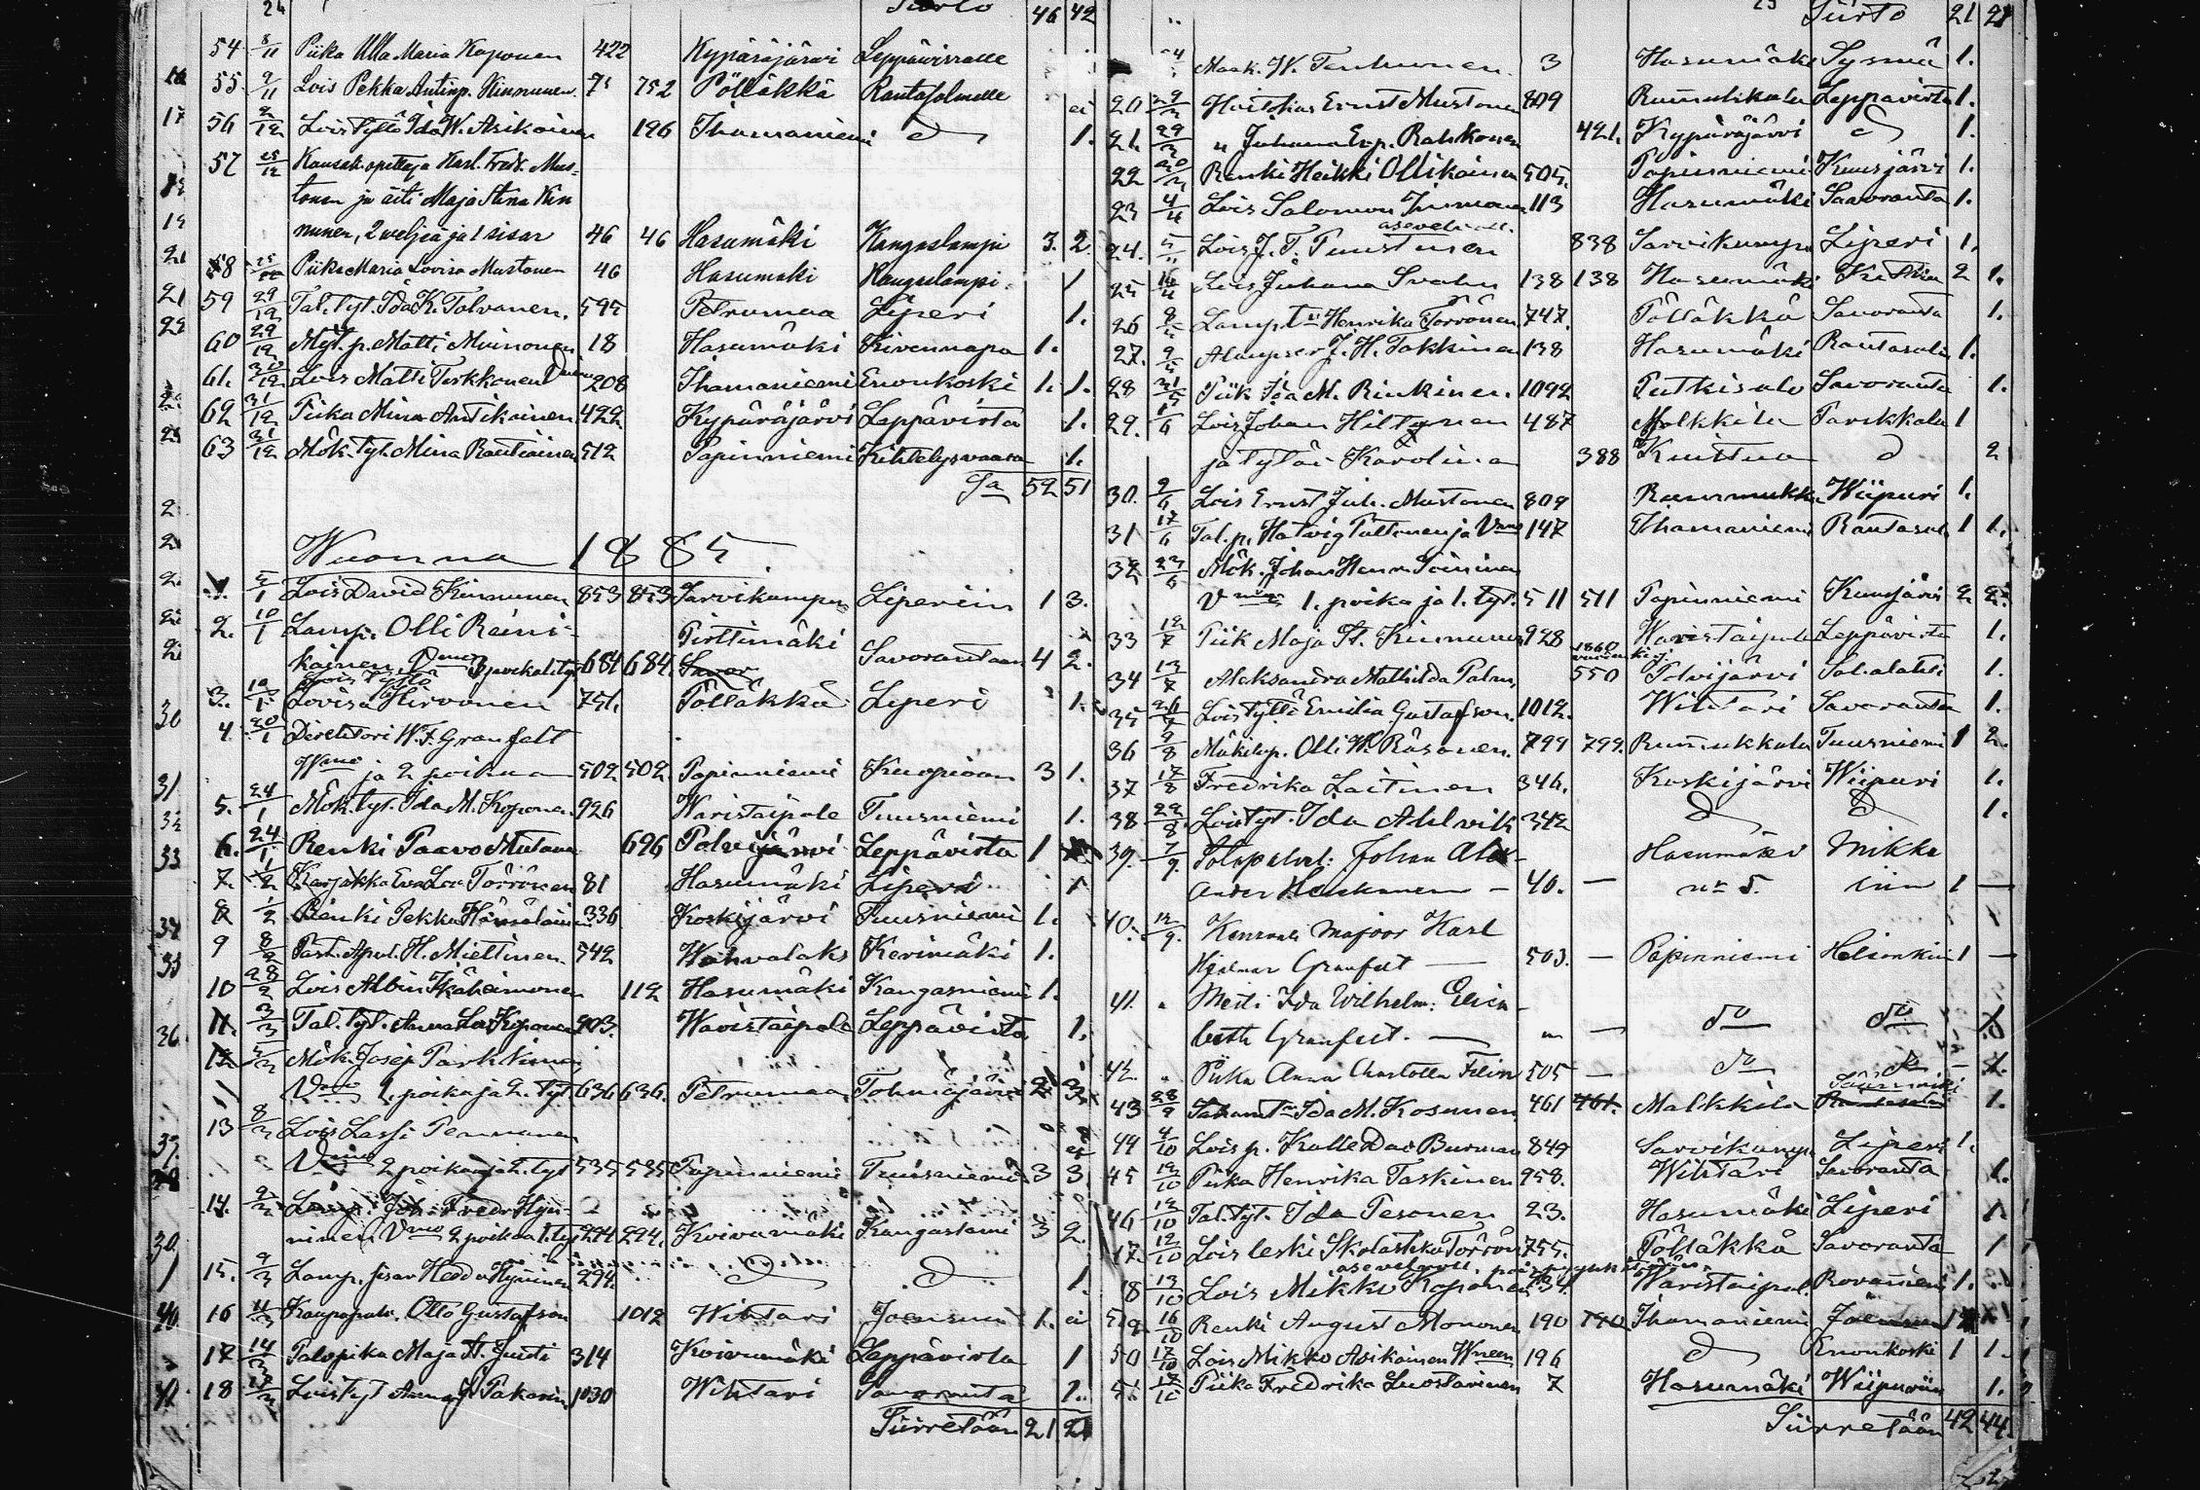 24 Siirto 46 42
54 8/11 Piika Ulla Maria Kaponen 422 Kypäräjärvi Leppävirralle
55 9/11 Lois Pekka Antinp. Kinnunen 75 752 Pölläkkä Rantasalmelle
56 2/12 Lois tyttö Ida W. Asikainen 196 Ihamaniemi d 1.
57 25/12 Kansak. opettaja Karl. Fredr. Mus-
tonen ja äiti Maja Stina Kin
nunen, 2 weljeä ja 1 sisar 46 46 Hasumäki Kangaslampi 3. 2
58 Piika Maria Lovisa Mustonen 46 Hasumäki Kangaslampi 1
59 29/12 Tal. tyt. Ida K. Tolvanen. 595 Petrumaa Liperi 1.
60 29/12 Matti Muinonen 18 Hasumäki Kivennapa 1.
61. 30/12 Lois Matti Turkkonen 208 Ihamaniemi Enonkoski 1. 1.
62 31/12 Piika Mina Antikainen 422 Kypäräjärvi Leppävirta 1.
63 31/12 Mök. tyt. Mina Rautiainen 512 Papinniemi Kihtelysvaara 1.
Sa 52 51
Wuonna 1885
5/1 Lois David Kinnunen 853 853 Sarvikumpu Liperiin 1 3.
2. 10/1 Lamp. Olli Reini-
kainen, Vmo 3 poika 1. tyt 684 684 Pirttimäki Savorantaan 4 2.
Lois tyttö
3. Lovisa Hirvonen 751. Pölläkkä Liperi 1.
4. 20/1 Direhtori W. F. Granfelt
Wmo ja 2 poikaa 502 502 Papinniemi Kuopioon 3 1.
5. 24/1 Mök. tyt. Ida M. Koponen 926 Waristaipale Tuusniemi 1.
6. 24/1 Renki Paavo Mutanen 696 Polvijärvi Leppävirta 1
7. 1/2 Karjakko Eva Lov Törrönen 81 Hasumäki Liperi 1
8 1/2 Renki Pekka Hämäläinen 336 Koskijärvi Tuusniemi 1.
9 8/2 Past. Apul. H. Miettinen 542 Wahvalaks Kerimäki 1.
10 28/2 Lois Albin Ikäheimonen 112 Hasumäki Kangasniemi 1.
11. 3/3 Tal. tyt. Anna Lov. Koponen 903. Waristaipale Leppävirta 1.
12 5/3 Mök. Josep Parkkinen
Vmo 1. poika ja 2. tyt 636 636. Petrumaa Tohmajärvi 2 3.
13 8/3 Lois Lassi Pennanen
Vmo 2 poikaa ja 2. tyt 535 535 Papinniemi Tuusniemi 3 3.
14. 9/3 Lamp. Joh. Fredr Hyn-
ninen Vmo 2 poikaa 1. tyt 294 294. Koivumäki Kangaslami 3 2.
15. 9/3 Lamp. sisar Hedda Hyninen 294. d d 1.
16 11/3 Kauppapalv. Otto Gustafson 1012 Wihtari Joensuu 1.
17 14/3 Palvpiika Maja St. Justi 314 Koivumäki Leppävirta 1
18 Loistyt Anna G. Pakarin 1030 Wihtari Savoranta 1.
Siirretään 21 21
Siirto 21 21
Maak. W. Tenhunen. 3 Hasumäki Sysmä 1.
20 29/3 Ernst Mustonen 809 Rummukkala Leppävirta 1.
21. 29/3 „ Juhana Er.p. Rahkonen 421. Kypäräjärvi d 1.
22 30/3 Renki Heikki Ollikainen 505. Papinniemi Kuusjärvi 1.
23 4/4 Lois Salomon Immonen 113 Hasumäki Savoranta 1.
24. Lois J. T. Puustinen 838 Sarvikumpu Liperi 1.
25 Lois Juhana Svahn 138 138 Hasumäki 2 1.
26 Lamp. Henrika Törrönen 747. Pölläkkä Savoranta 1.
27. J. H. Takkinen 138 Hasumäki Rantasalm 1.
28 31/5 Piik Ida M. Rinkinen. 1092 Putkisalo Savoranta 1.
29. 1/6 Lois Johan Hiltunen 487 Malkkila Parikkala 1
ja tytär Karolina 388 Kuittua d 2
30. 9/6 Lois Ernst Juh. Mustonen 809 Rummukk Wiipuri 1.
31 17/6 Tal. p. Hatvig Pulttinen ja Vmo 147 Ihamaniemi Rantasal. 1 1.
32 Mök. Johan Henr. Soininen
Vmo 1. poika ja 1. tyt. 511 511 Papinniemi Kuusjärvi 2 2.
33 12/7 Piik Maja St. Kinnunen 928 Waristaipale Leppävirta 1.
34 13/7 Aleksandra Mathilda Palm. 550 Polvijärvi 1.
35 Loistyttö Emilia Gustafson. 1012. Wihtari Savoranta 1.
36 9/8 Mäkitup. Olli W. Räsänen. 799 799. Rummukkala Tuusniemi 1 2.
37 17/8 Fredrika Laitinen 346. Koskijärvi Wiipuri 1.
38 29/8 Loistyt. Ida Ahlvik 342 d d 1.
39. 7/9. Johan Alex-
ander Heiskanen — 40. — Hasumäki nr 5. Mikke
liin 1 —
40. 12/9. Kenraali Majoor Karl
Hjalmar Granfelt — 503. — Papinniemi Helsinkiin 1 —
41. „ Neiti Ida Wilhelm. Elisa-
beth Granfelt. — „ — do do
42. „ Piika Anna Charlotta Filin 505 — do do — 1.
43 28/9 Ida M. Kosunen 461 461. Malkkila Säämiki 1.
44 4/10 Lois p. Kalle Dav Burman 849 Sarvikumpu Liperi 1.
45 12/10 Piika Henrika Taskinen 958. Wihtari Savoranta 1.
46 12/10 Tal. tyt. Ida Pesonen 23. Hasumäki Liperi 1.
47. 12/10 Lois leski Skolastika Törrön 755. Pölläkkä Savoranta 1
48 13/10 Lois Mikki Koponen Waristaipal. Rovaniemi 1.
49. 16/10 Renki August Mononen 190 190 Ihamaniemi Joensuu
50 17/10 Lois Mikko Asikainen Wneen 196 d Enonkoski 1 1.
51. 17/10 Piika Fredrika Luostarinen 7 Hasumäki Wiipuriin 1.
Siirretään 42 44